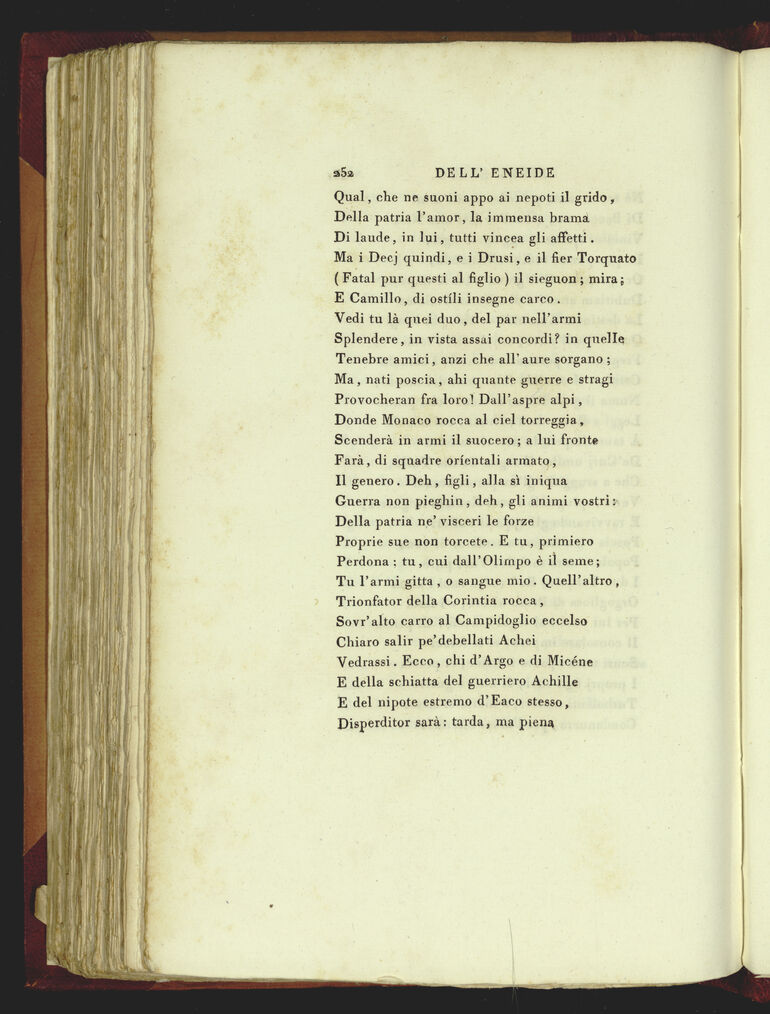 252 DELL' ENEIDE
Qual, che ne suoni appo ai nepoti il grido,
Della patria l'amor, la immensa brama
Di laude, in lui, tutti vincea gli affetti.
Ma i Decj quindi, e i Drusi, e il fier Torquato
(Fatal pur questi al figlio) il sieguon; mira;
E Camillo, di ostíli insegne carco.
Vedi tu là quei duo, del par nell'armi
Splendere, in vista assai concordi? in quelle
Tenebre amici, anzi che all'aure sorgano;
Ma, nati poscia, ahi quante guerre e stragi
Provocheran fra loro! Dall'aspre alpi,
Donde Monaco rocca al ciel torreggia,
Scenderà in armi il suocero; a lui fronte
Farà, di squadre oríentali armato,
Il genero. Deh, figli, alla sì iniqua
Guerra non pieghin, deh, gli animi vostri:
Della patria ne' visceri le forze
Proprie sue non torcete. E tu, primiero
Perdona; tu, cui dall'Olimpo è il seme;
Tu l'armi gitta, o sangue mio. Quell'altro,
Trionfator della Corintia rocca,
Sovr'alto carro al Campidoglio eccelso
Chiaro salir pe'debellati Achei
Vedrassi. Ecco, chi d'Argo e di Micéne
E della schiatta del guerriero Achille
E del nipote estremo d'Eaco stesso,
Disperditor sarà: tarda, ma piena